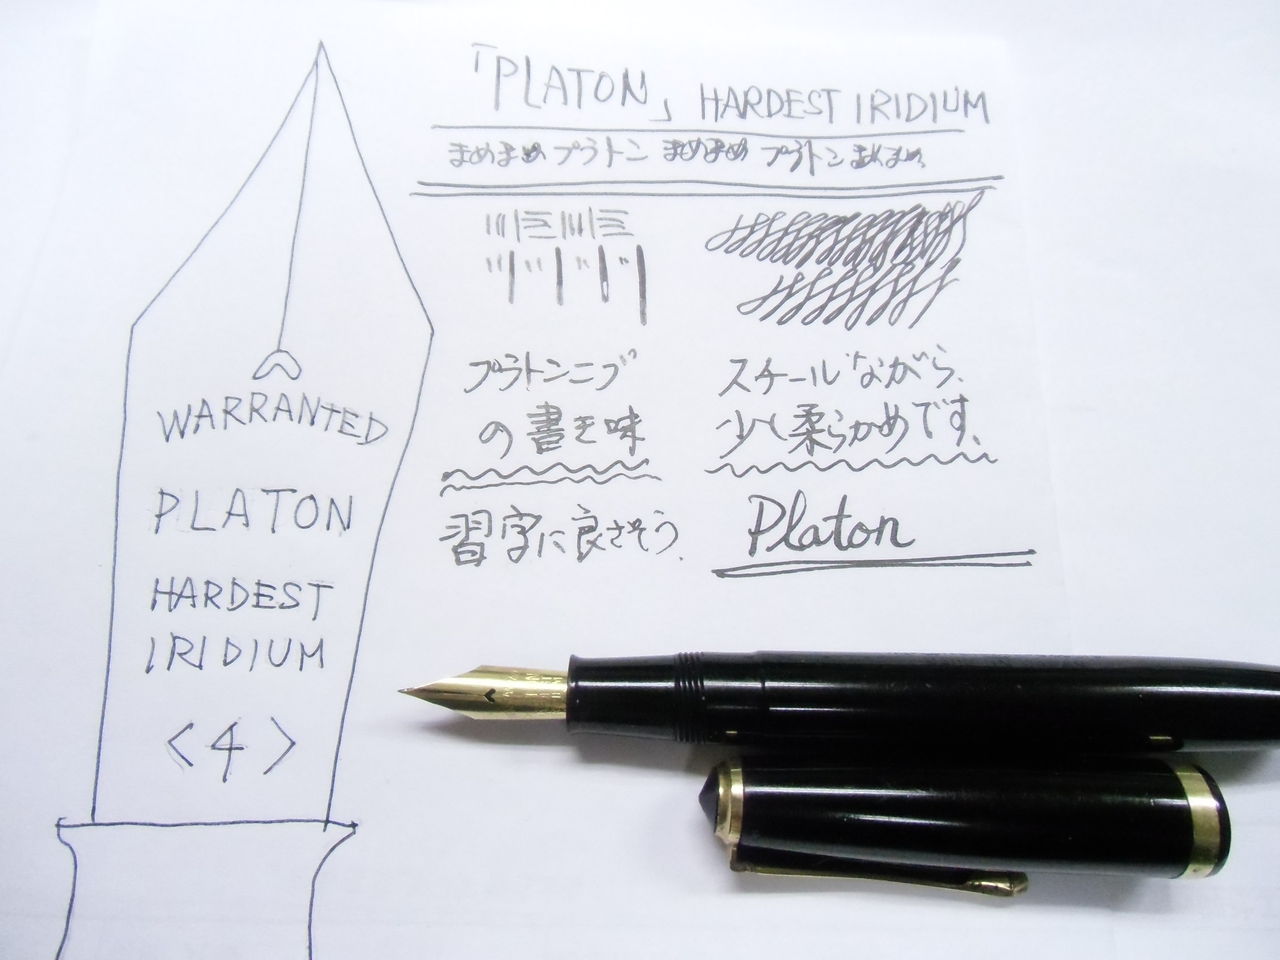 「PLATON」 HARDEST IRIDIUM
まめまめ プラトン まめまめ プラトン まめまめ
プラトンニブ
の書き味
スチールながら、
少し柔らかめです。
習字に良さそう。
Platon
WARRANTED
PLATON
HARDEST
IRIDIUM
<4>